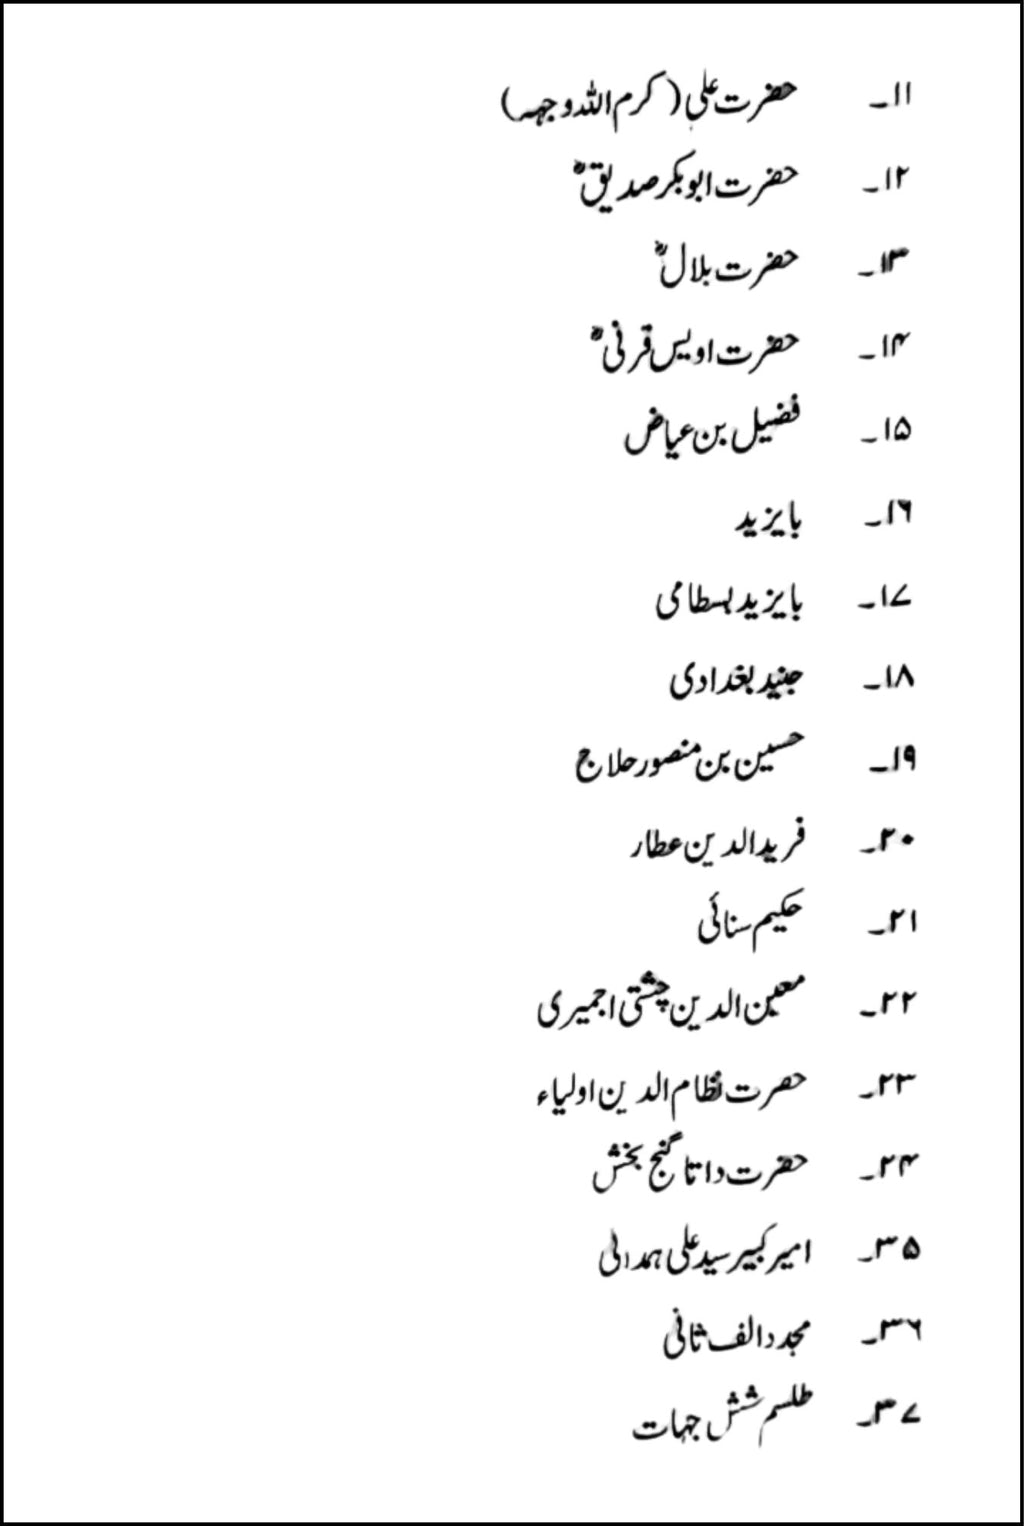 ۱۱۔ حضرت علی (کرم اللہ وجہہ)
۱۲۔ حضرت ابوبکر صدیقؓ
۱۳۔ حضرت بلالؓ
۱۴۔ حضرت اویس قرنیؓ
۱۵۔ فضیل بن عیاض
۱۶۔ بایزید
۱۷۔ بایزید بسطامی
۱۸۔ جنید بغدادی
۱۹۔ حسین بن منصور حلاج
۲۰۔ فریدالدین عطار
۲۱۔ حکیم سنائی
۲۲۔ معین الدین چشتی اجمیری
۲۳۔ حضرت نظام الدین اولیاء
۲۴۔ حضرت داتا گنج بخش
۳۵۔ امیر کبیر سید علی ہمدانی
۳۶۔ مجدد الف ثانی
۳۷۔ طلسم شش جہات